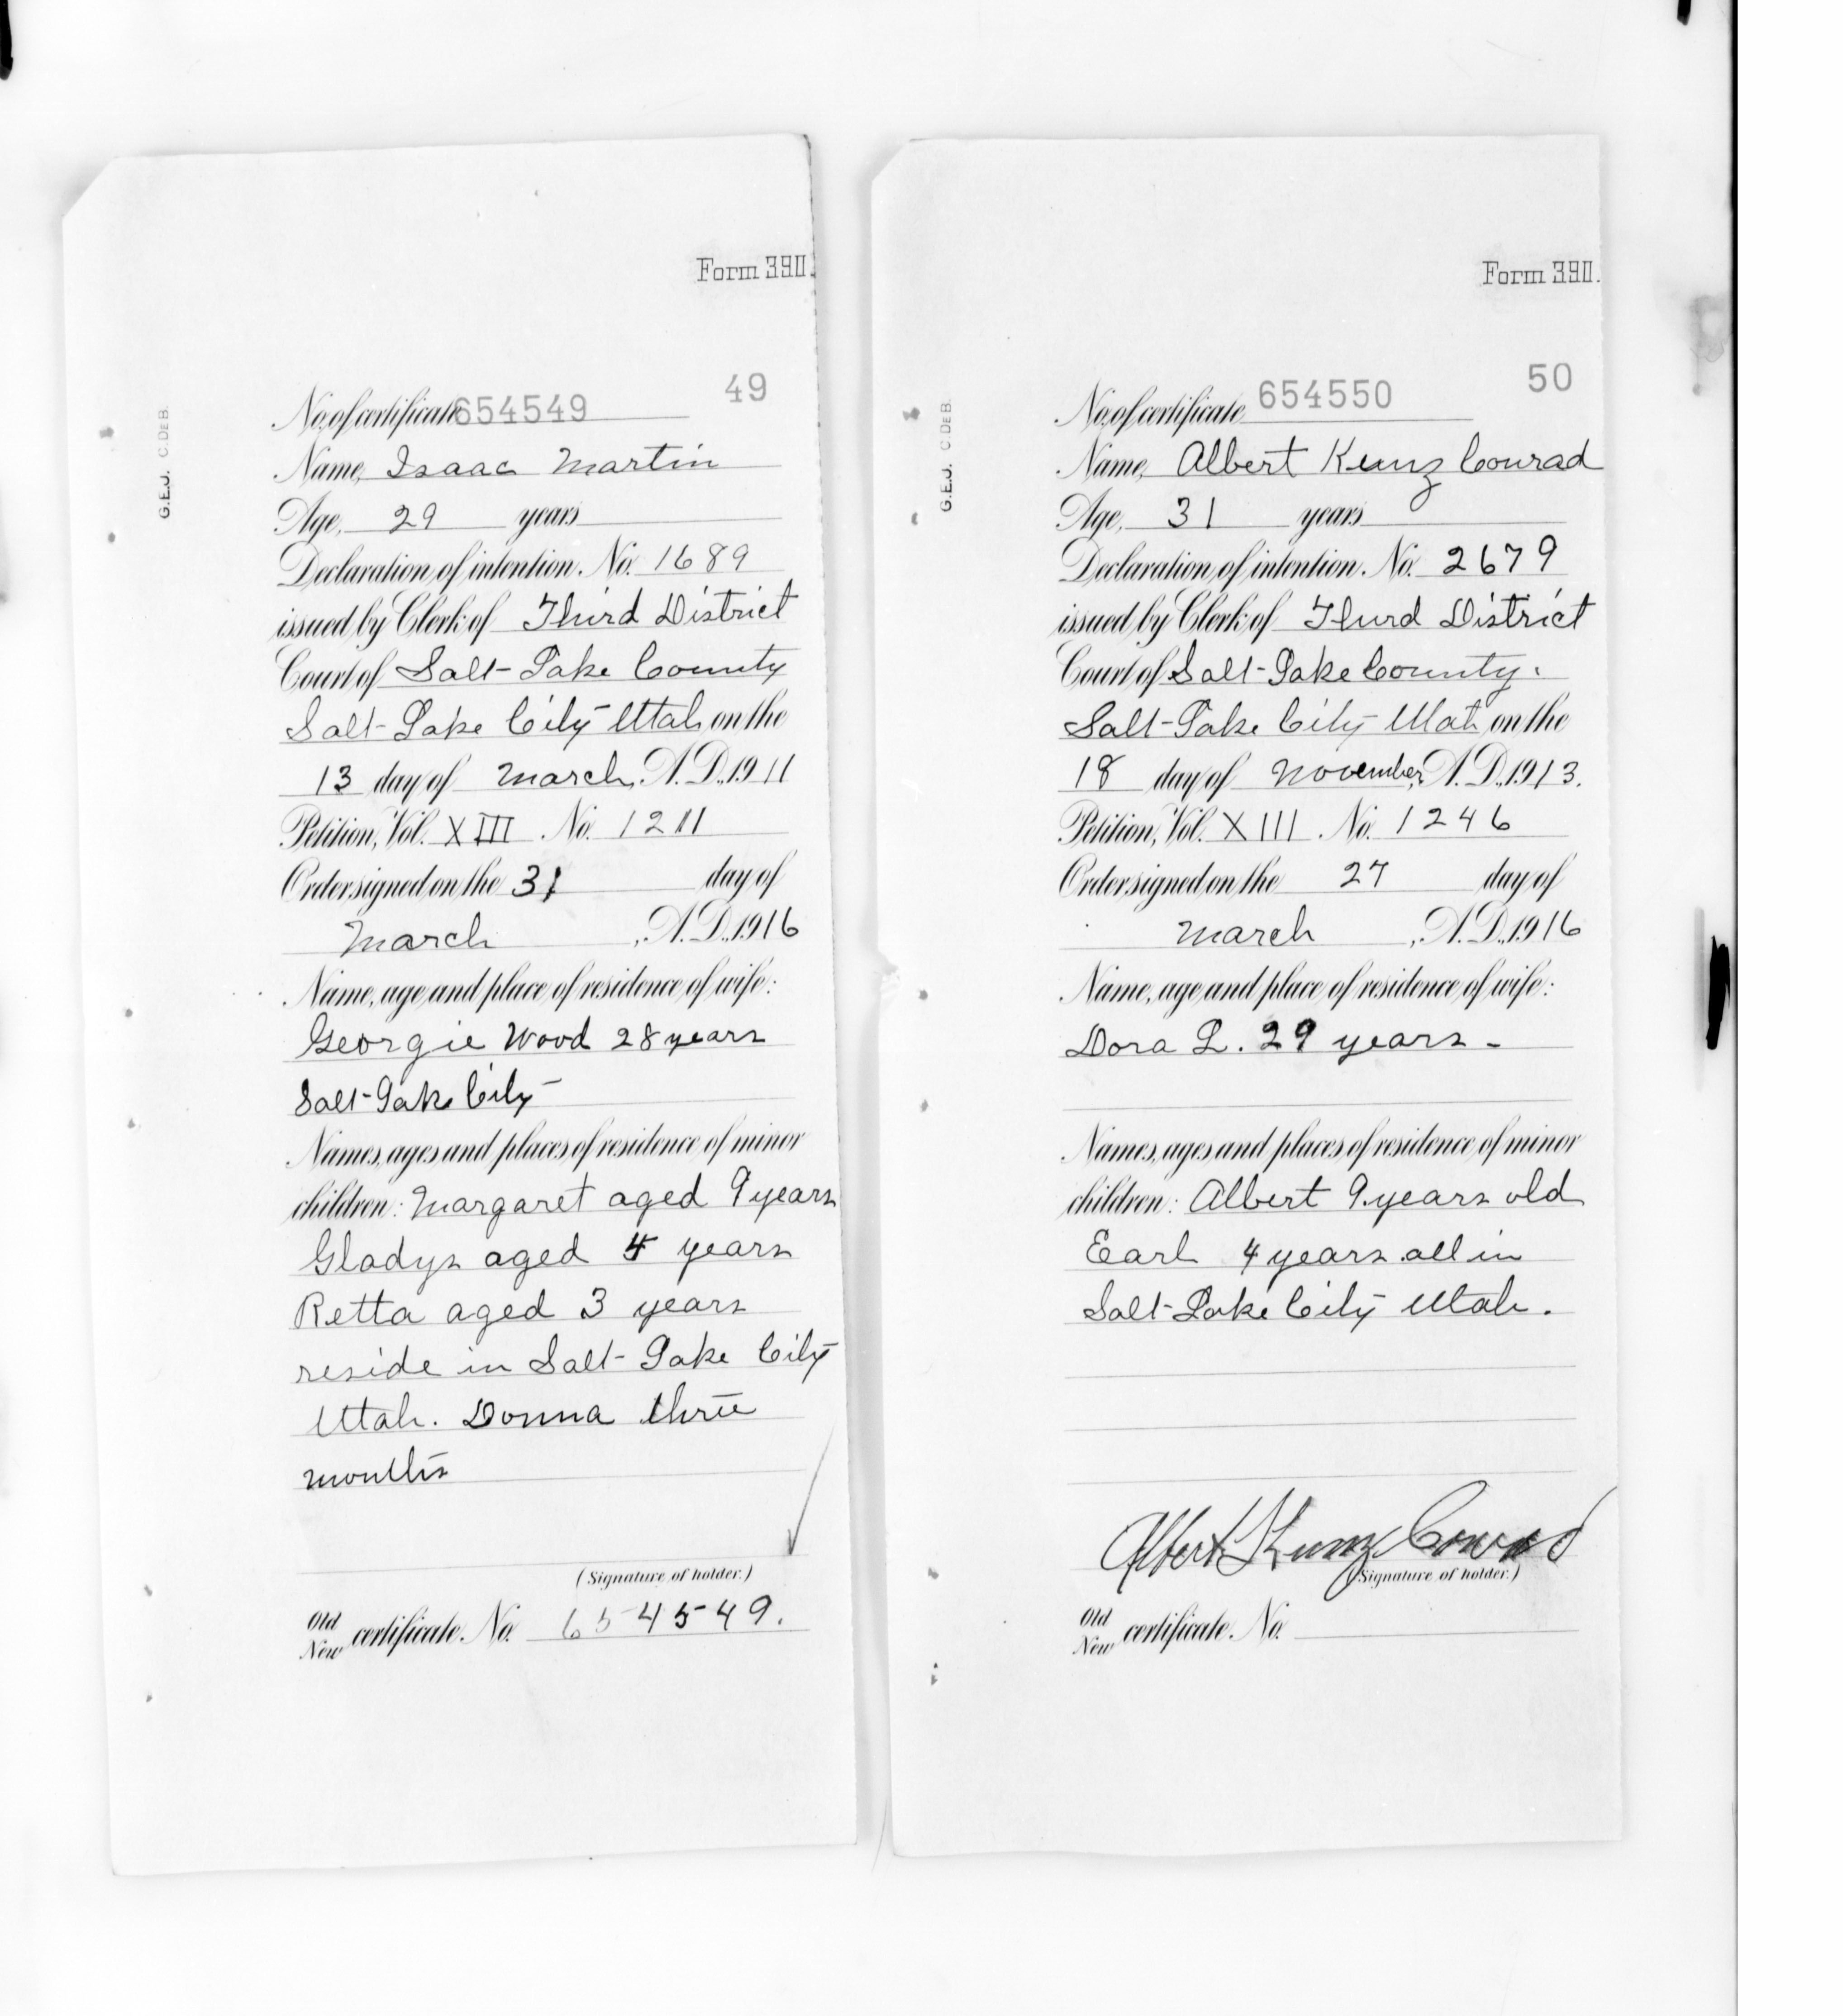 Form 390.
49
No. of certificate 654549
Name, Isaac Martin
Age, 29 years
Declaration of intention. No. 1689
issued by Clerk of Third District
Court of Salt-Lake County
Salt-Lake City Utah on the
13 day of March, A.D. 1911
Petition, Vol. XIII No. 1211
Order signed on the 31 day of
March, A.D. 1916
Name, age and place of residence of wife:
Georgie Wood 28 years
Salt-Lake City
Names, ages and places of residence of minor
children: Margaret aged 9 years
Gladys aged 4 years
Retta aged 3 years
reside in Salt-Lake City
Utah. Donna three
months
(Signature of holder.)
Old
New certificate. No. 654549.
G.E.J. C. DE B.
Form 390.
50
No. of certificate 654550
Name, Albert Kunz Conrad
Age, 31 years
Declaration of intention. No. 2679
issued by Clerk of Third District
Court of Salt-Lake County.
Salt-Lake City Utah on the
18 day of November, A.D. 1913.
Petition, Vol. XIII No. 1246
Order signed on the 27 day of
March, A.D. 1916
Name, age and place of residence of wife:
Dora L. 29 years -
Names, ages and places of residence of minor
children: Albert 9 years old
Earl 4 years all in
Salt-Lake City Utah.
Albert Kunz Conrad
(Signature of holder.)
Old
New certificate. No.
G.E.J. C. DE B.